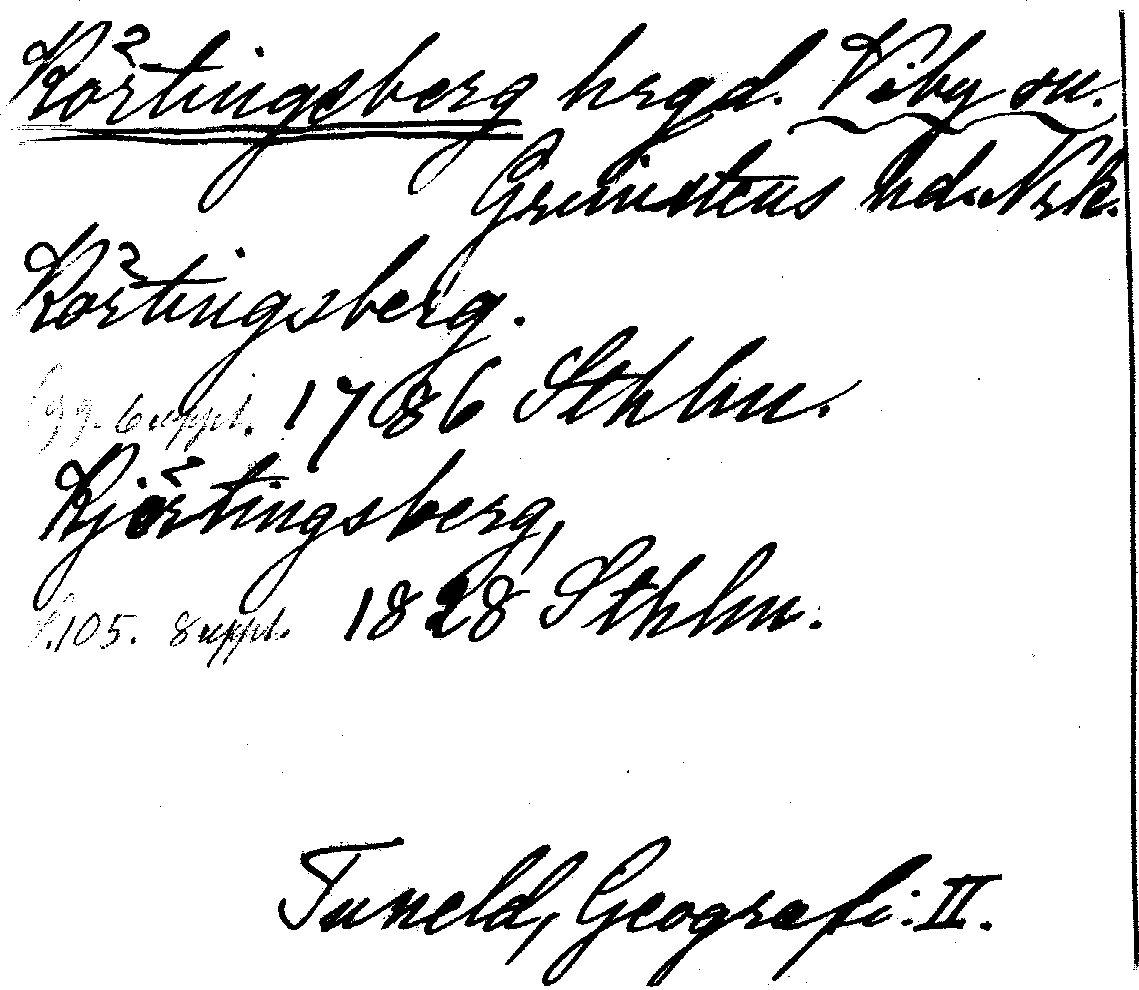 Körtingsberg hrgd. Viby sn.
Grimstens hd. Nrk.
Körtingsberg.
6 uppl. 1786 Sthlm.
Kjörtingsberg,
s. 105. 8 uppl. 1828 Sthlm.
Tuneld, Geografi: II.